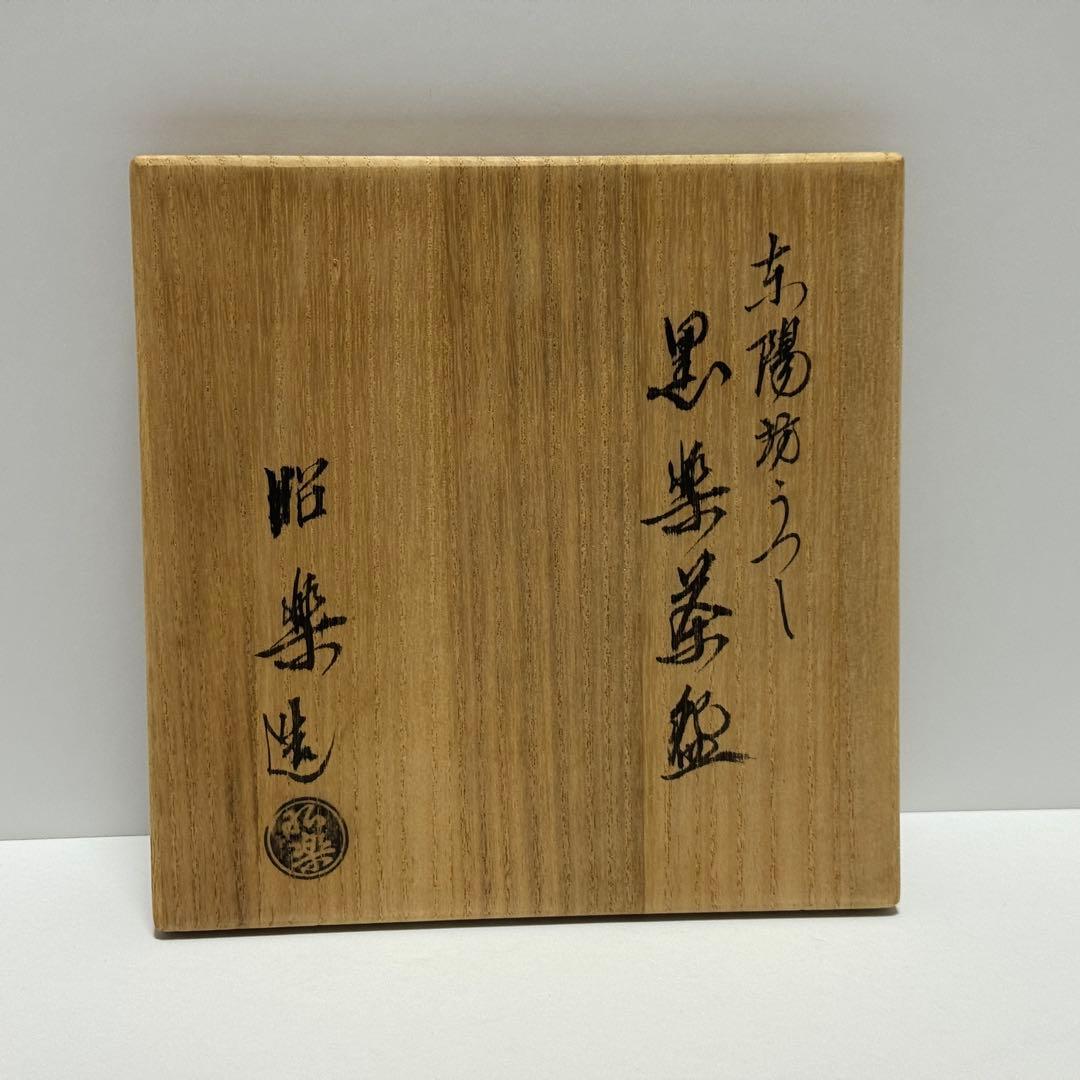 東陽坊うつし
黒楽茶碗
昭楽造
昭楽